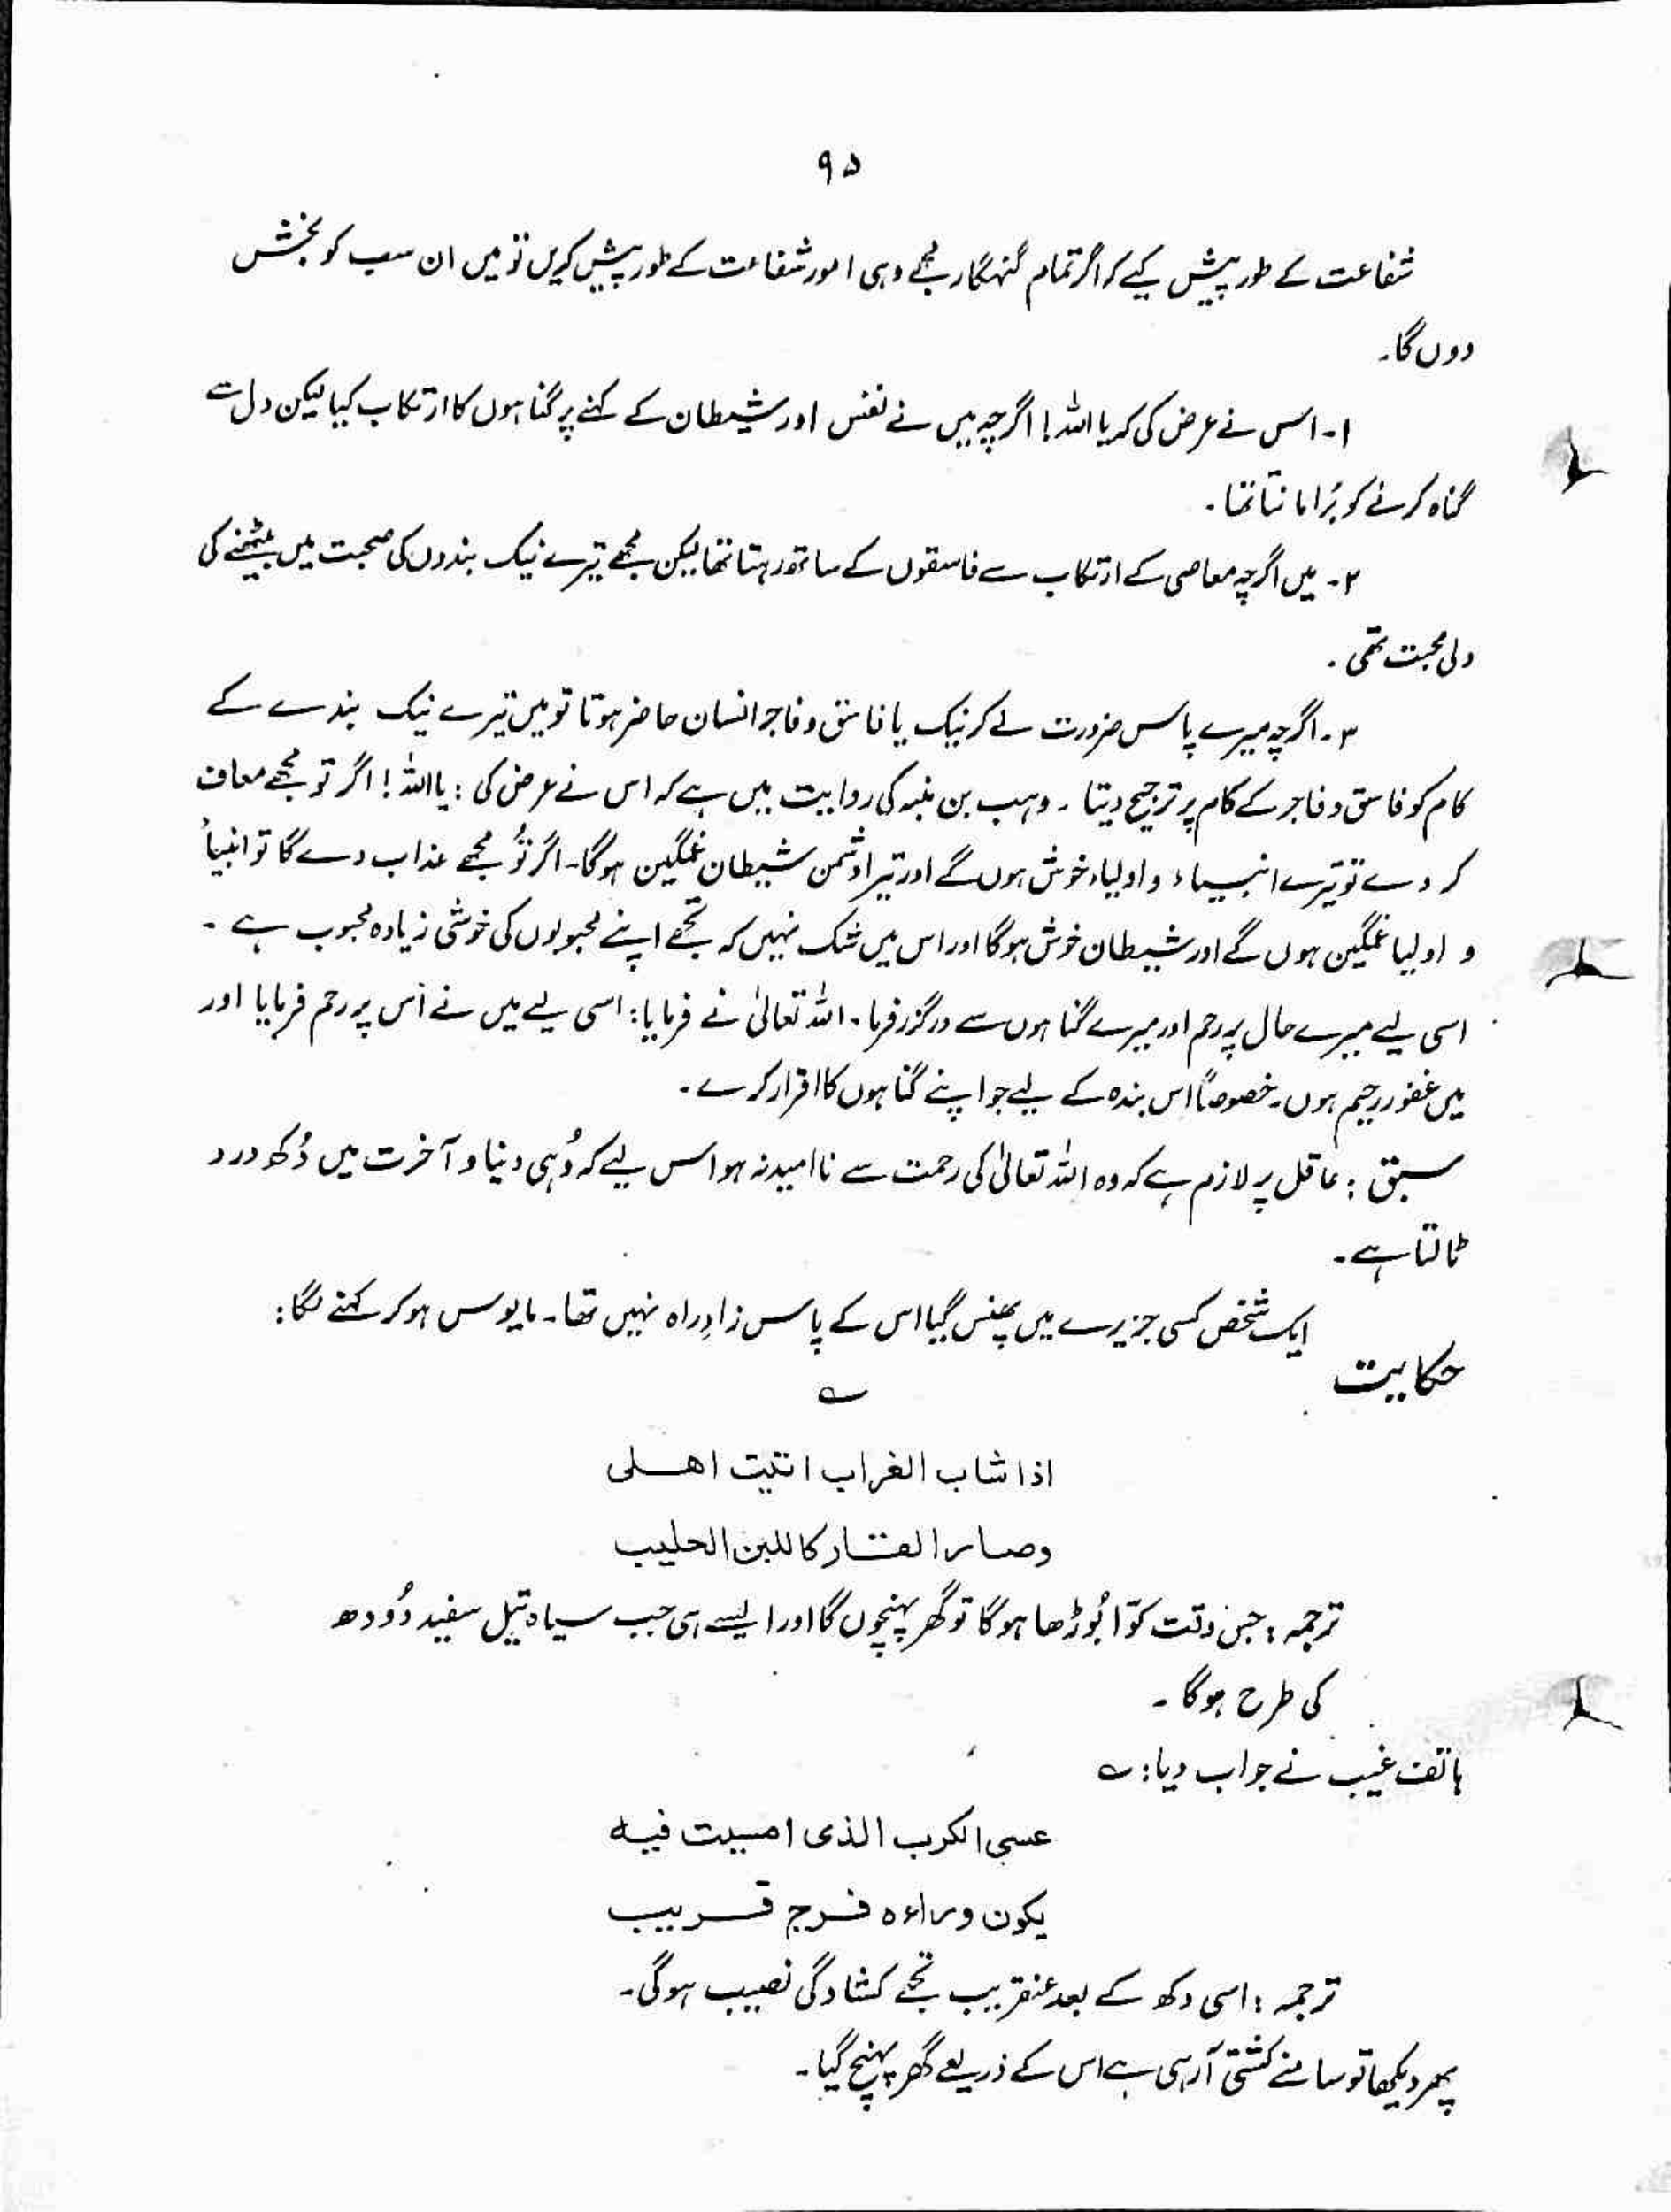 ۹۵
شفاعت کے طور پیش کیے کہ اگر تمام گنہگار مجھے وہی امور شفاعت کے طور پیش کریں تو میں ان سب کو بخش
دوں گا۔
۱۔ اس نے عرض کی کہ یا اللہ! اگرچہ میں نے نفس اور شیطان کے کہنے پر گناہوں کا ارتکاب کیا لیکن دل سے
گناہ کرنے کو بُرا مانتا تھا۔
۲۔ میں اگرچہ معاصی کے ارتکاب سے فاسقوں کے ساتھ رہتا تھا لیکن مجھے تیرے نیک بندوں کی صحبت میں بیٹھنے کی
دلی محبت تھی۔
۳۔ اگرچہ میرے پاس ضرورت لے کر نیک یا فاسق و فاجر انسان حاضر ہوتا تو میں تیرے نیک بندے کے
کام کو فاسق و فاجر کے کام پر ترجیح دیتا ۔ وہب بن منبہ کی روایت میں ہے کہ اس نے عرض کی : یا اللہ ! اگر تو مجھے معاف
کر دے تو تیرے انبیاء و اولیاء خوش ہوں گے اور تیرا دشمن شیطان غمگین ہوگا۔ اگر تُو مجھے عذاب دے گا تو انبیأ
و اولیا غمگین ہوں گے اور شیطان خوش ہوگا اور اس میں شک نہیں کہ تجھے اپنے محبوبوں کی خوشی زیادہ محبوب ہے ۔
اسی لیے میرے حال پر رحم اور میرے گناہوں سے درگزر فرما۔ اللہ تعالیٰ نے فرمایا: اسی لیے میں نے اُس پر رحم فرمایا اور
میں غفور رحیم ہوں۔ خصوصاً اس بندہ کے لیے جو اپنے گناہوں کا اقرار کرے ۔
سبق : عاقل پر لازم ہے کہ وہ اللہ تعالیٰ کی رحمت سے ناامید نہ ہو اس لیے کہ وُہی دنیا و آخرت میں دُکھ درد
ٹالتا ہے۔
ایک شخص کسی جزیرے میں پھنس گیا اس کے پاس زادِ راہ نہیں تھا۔ مایوس ہو کر کہنے لگا:
حکایت
؎
اذا شاب الغراب اتیت اھلی
وصار القار کاللبن الحلیب
ترجمہ : جس وقت کوّا بُوڑھا ہو گا تو گھر پہنچوں گا اور ایسے ہی جب سیاہ تیل سفید دُودھ
کی طرح ہوگا ۔
ہاتف غیب نے جواب دیا: ؎
عسی الکرب الذی امسیت فیہ
یکون وراءہ فرج قریب
ترجمہ : اسی دکھ کے بعد عنقریب تجھے کشادگی نصیب ہوگی۔
پھر دیکھا تو سامنے کشتی آ رہی ہے اس کے ذریعے گھر پہنچ گیا۔